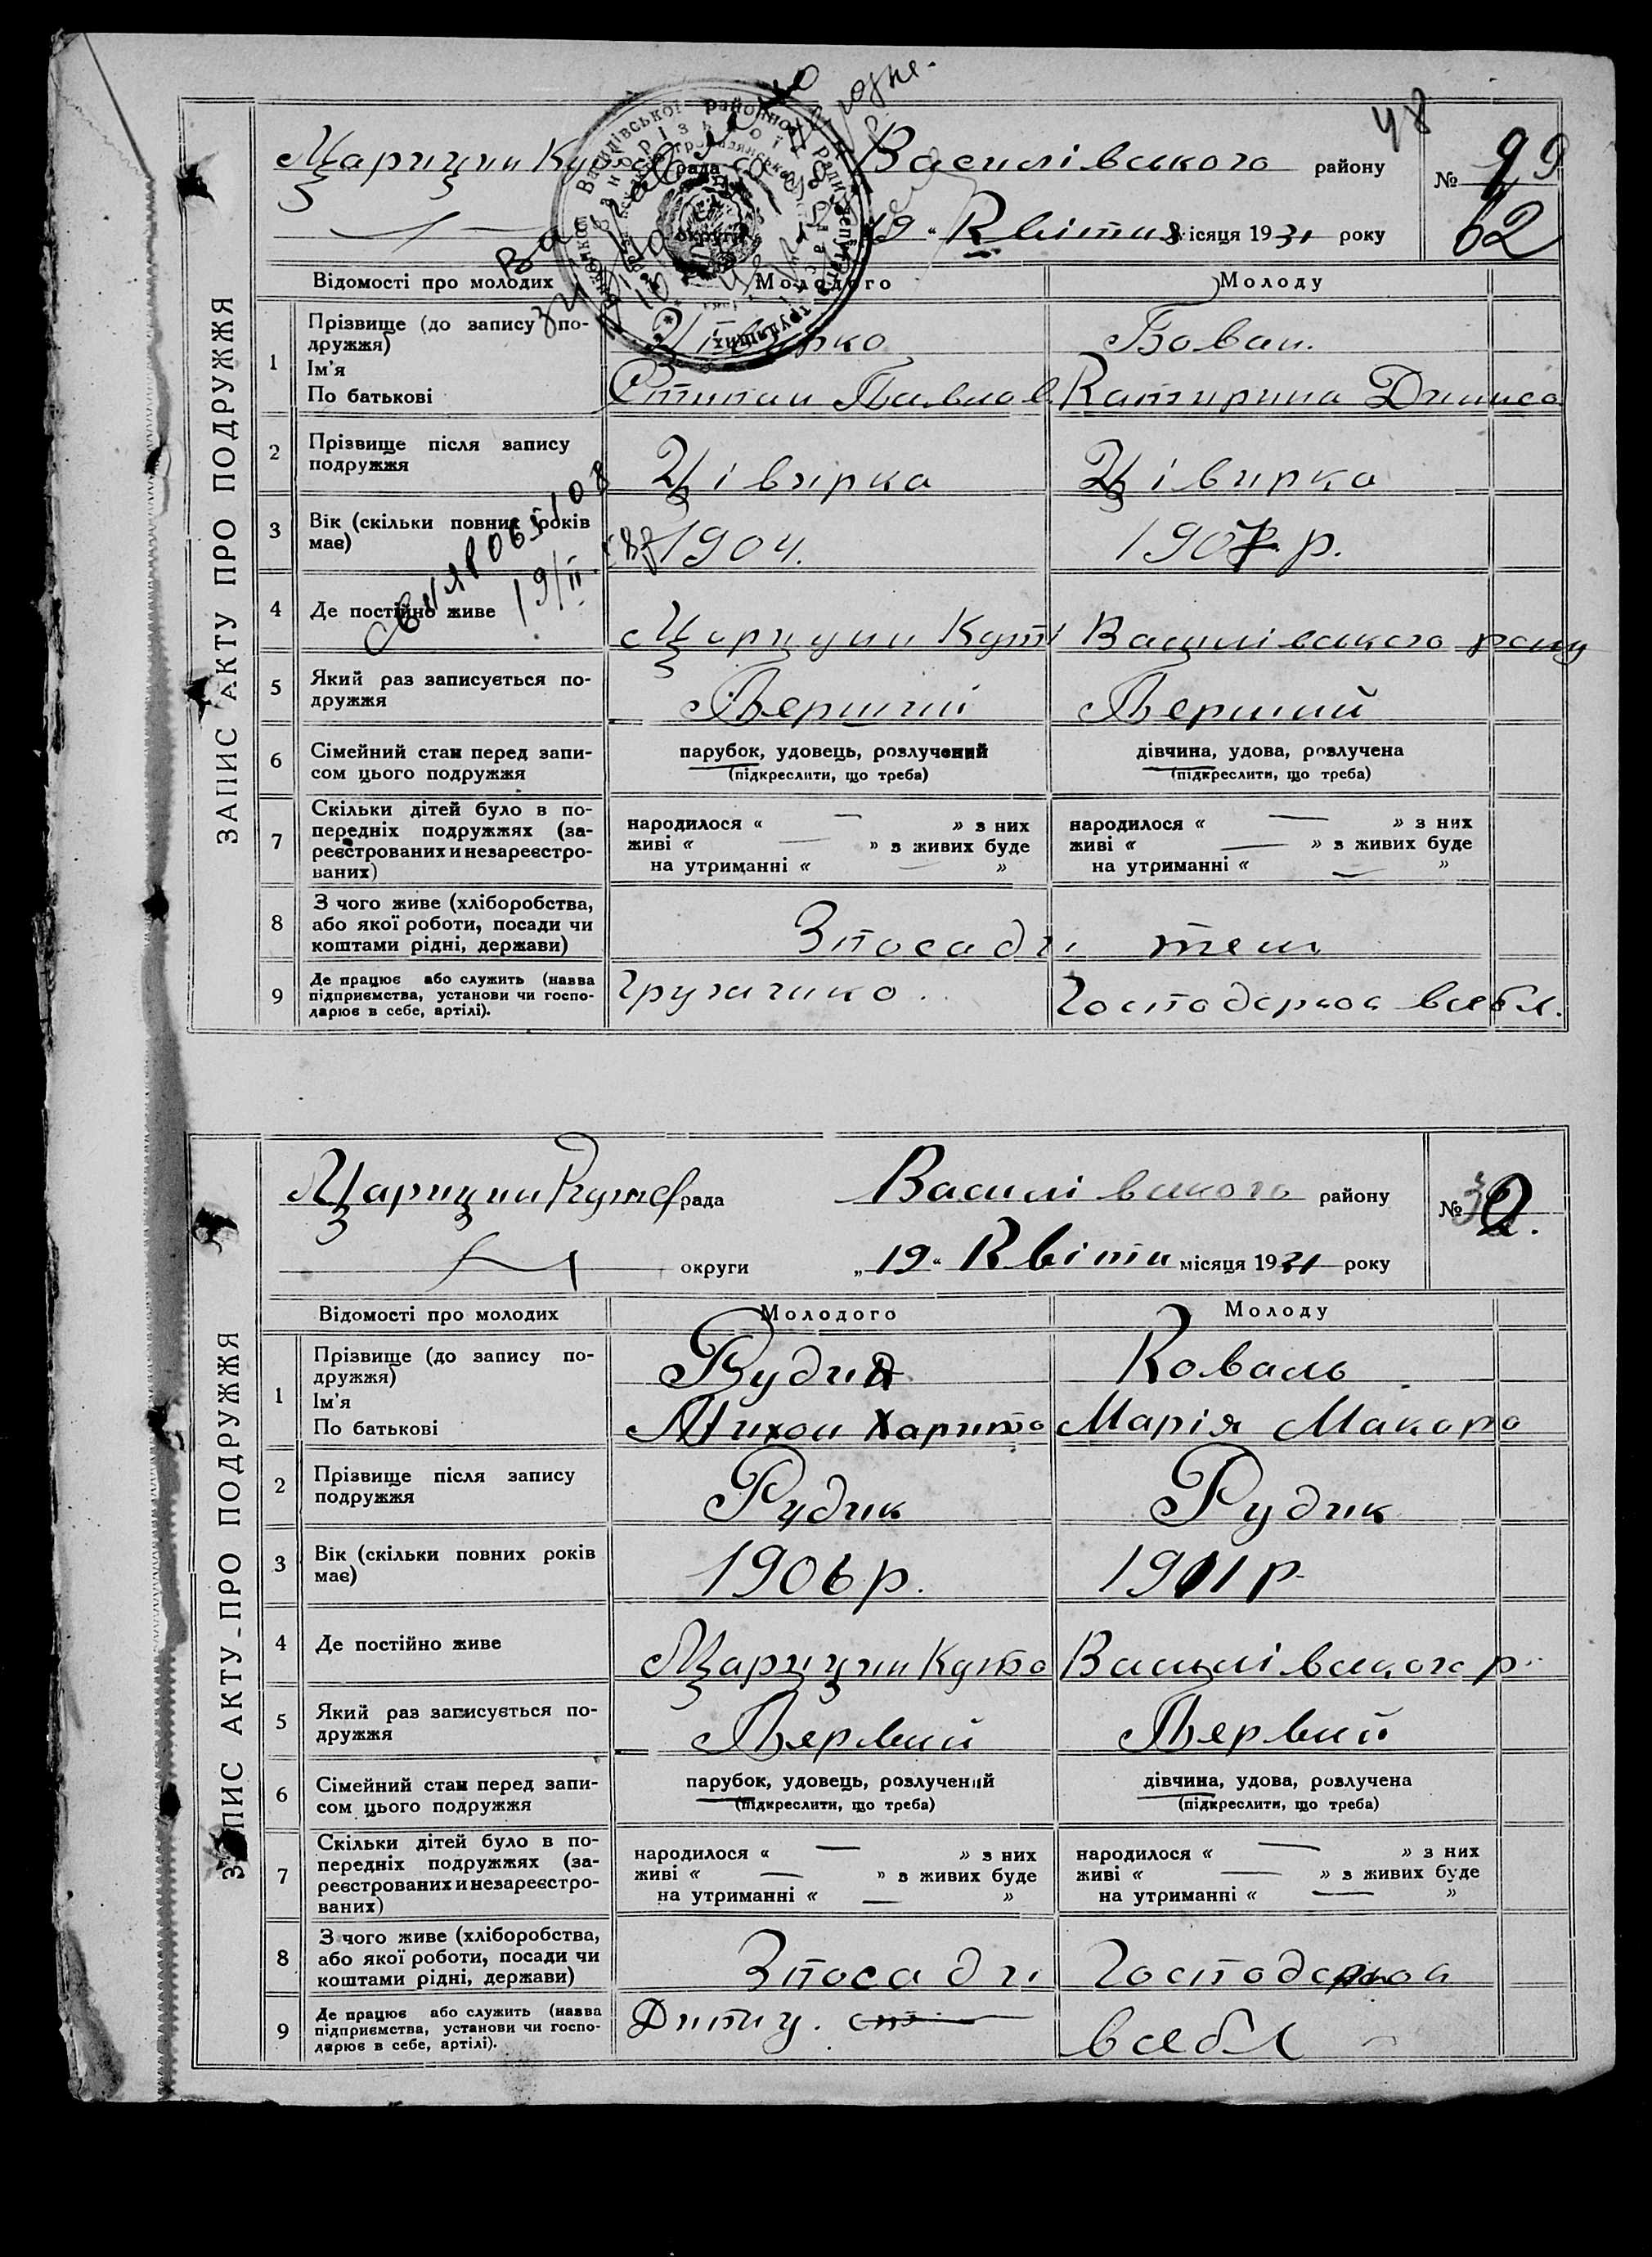 48
Царицин Ку рада Василівського району № 29
19 " Квітня місяця 1931 року 62
ЗАПИС АКТУ ПРО ПОДРУЖЖЯ
Відомості про молодих Молодого Молоду
1 Прізвище (до запису по-
дружжя) Цівирко Бован.
Ім'я
По батькові Степан Павлов Катирина Дениса
2 Прізвище після запису
подружжя Цівирка Цівирка
3 Вік (скільки повних років
має) 1904. 1907 р.
19/II
4 Де постійно живе Царицин Кут Василівського рону
5 Який раз записується по-
дружжя Перший Перший
6 Сімейний стан перед запи-
сом цього подружжя парубок, удовець, розлучений дівчина, удова, розлучена
(підкреслити, що треба) (підкреслити, що треба)
7 Скільки дітей було в по-
передніх подружжях (за-
реєстрованих и незареєстро-
ваних)
народилося « — » з них народилося « — » з них
живі « — » з живих буде живі « — » з живих буде
на утриманні « — » на утриманні « — »
8 З чого живе (хліборобства,
або якої роботи, посади чи
коштами рідні, держави) Зпосади теш
9 Де працює або служить (назва
підприємства, установи чи госпо-
дарює в себе, артілі).
Господарює всебя.
ЗАПИС АКТУ ПРО ПОДРУЖЖЯ
Царицин Кутсь рада Василівського району № 30
округи „ 19 " Квітня місяця 1931 року
Відомості про молодих Молодого Молоду
1 Прізвище (до запису по-
дружжя) Рудик Коваль
Ім'я
По батькові Тихон Харито Марія Макаро
2 Прізвище після запису
подружжя Рудик Рудик
3 Вік (скільки повних років
має) 1906 р. 1911 р
4 Де постійно живе Царицин Кута Василівського р.
5 Який раз записується по-
дружжя Первий Первий
6 Сімейний стан перед запи-
сом цього подружжя парубок, удовець, розлучений дівчина, удова, розлучена
(підкреслити, що треба) (підкреслити, що треба)
7 Скільки дітей було в по-
передніх подружжях (за-
реєстрованих и незареєстро-
ваних)
народилося « — » з них народилося « — » з них
живі « — » з живих буде живі « — » з живих буде
на утриманні « — » на утриманні « — »
8 З чого живе (хліборобства,
або якої роботи, посади чи
коштами рідні, держави) Зпосади Господарює
9 Де працює або служить (назва
підприємства, установи чи госпо-
дарює в себе, артілі).
всебя